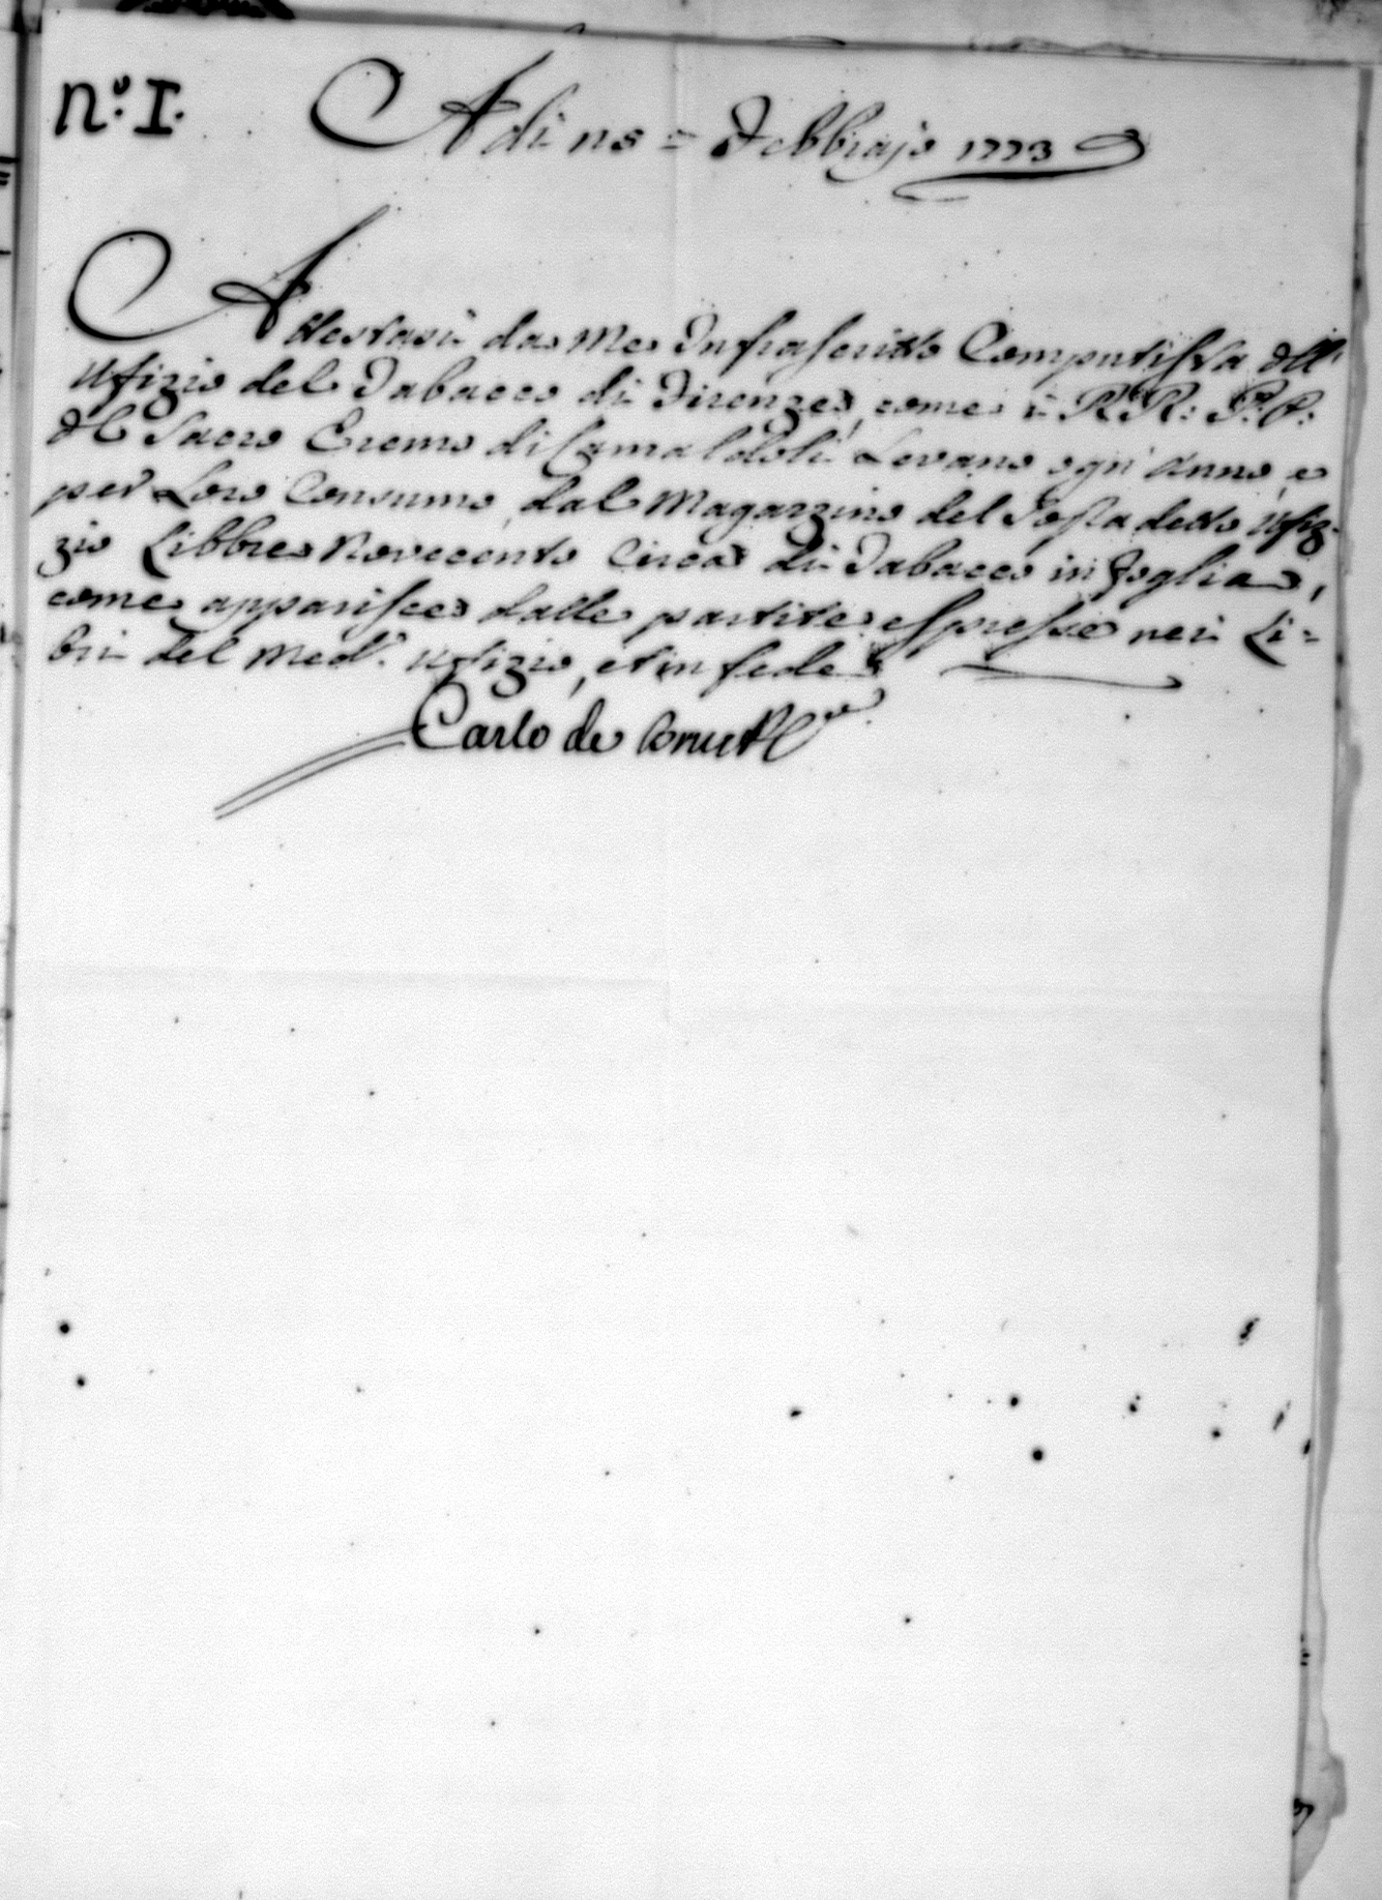 N.º I.
Adi 18 = Febbrajo 1773
Attestasi da Me Infrascritto Computista dell'
Ufizio del Tabacco di Firenze, come i RR: PP:
del Sacro Eremo di Camaldoli Levano ogn' Anno, e
per Loro Consumo, dal Magazzino del Sopradetto Ufiz-
zio Libbre Novecento Circa di Tabacco in foglia,
come apparisce dalle partite espresse nei Li=
bri del Med.º Ufizio, et in fede
Carlo de